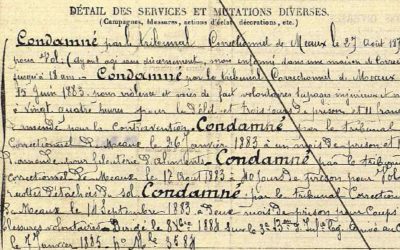 DÉTAIL DES SERVICES ET MUTATIONS DIVERSES.
(Campagnes, blessures, actions d'éclat, décorations, etc.)
Condamné par le tribunal Correctionnel de Meaux le 27 Août 187
pour Vol (ayant agi sans discernement, mis enfermé dans une maison de Correc
jusqu'à 18 ans - Condamné par le tribunal Correctionnel de Meaux
15 Juin 1883 pour violence et voies de fait volontaires tapages injurieux et n
à vingt quatre heures pour le délit et trois jours de prison et 11 francs
d'amende pour la Contravention. Condamné par le tribunal
Correctionnel de Meaux le 26 Janvier 1883 à un mois de prison et
d'amende pour filouterie d'aliments. Condamné par le tribunal
Correctionnel de Meaux le 17 Août 1883 à 40 jours de prison pour Vol
récoltes détachées du sol Condamné par le tribunal Correction
de Meaux le 14 Septembre 1883. à Deux mois de prison pour Coups
blessures volontaires - Dirigé le 8 Xbre 1884 sur le 3e
le 1er Janvier 1885 Nº Mle 3584